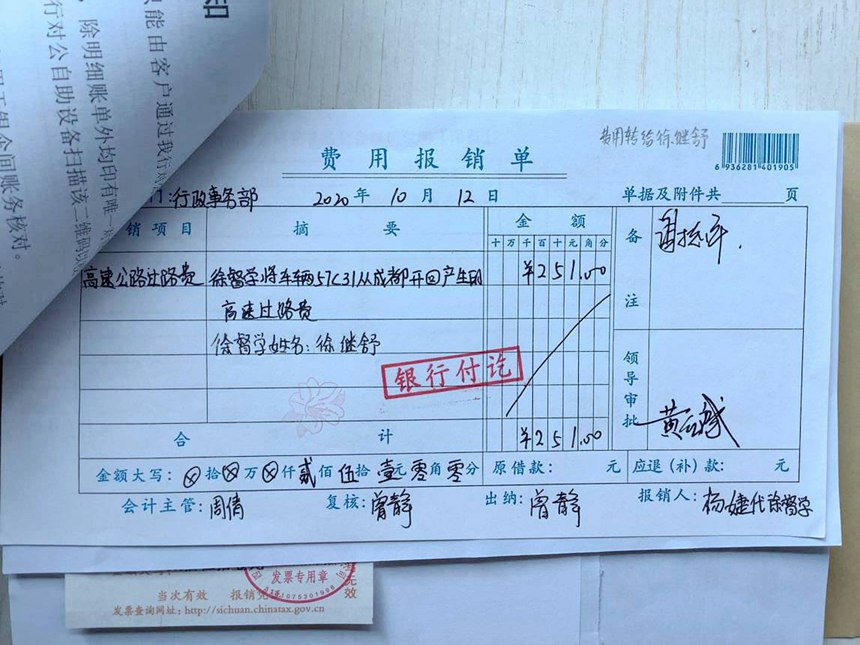 只能由客户通过我行对
除明细账单外均印有唯一
行对公自助设备扫描该二维码
金间账务核对。
费用转给徐继舒
费用报销单
6 936281 401905
门:行政事务部 2020年 10月 12日 单据及附件共 页
销项目 摘要 金额 备注
十万千百十元角分
高速公路过路费 徐督学将车辆57C31从成都开回产生的 ¥251.00
高速过路费
徐督学姓名:徐继舒
银行付讫
领导审批
合计 ¥251.00
金额大写:ⓧ拾ⓧ万ⓧ仟贰佰伍拾壹元零角零分 原借款: 元 应退(补)款: 元
会计主管:周倩 复核:曾静 出纳:曾静 报销人:杨婕代徐督学
发票专用章
当次有效 报销凭证 无效
发票查询网址:http://sichuan.chinatax.gov.cn